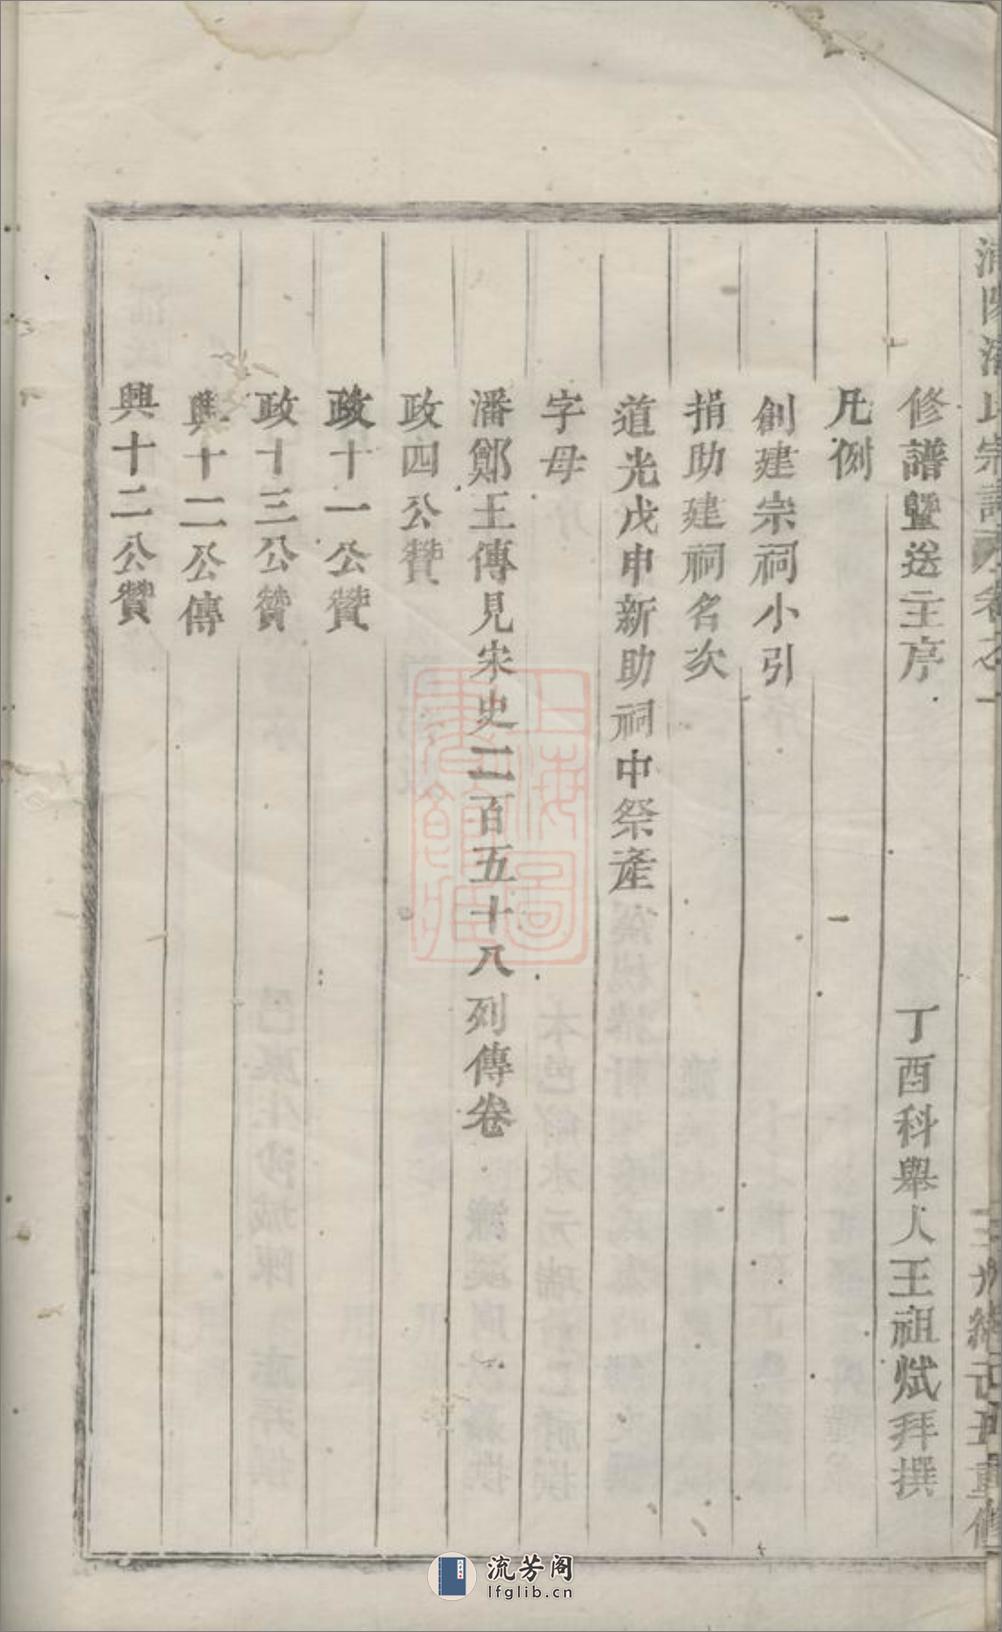 氏宗譜 卷之一
修譜暨送主序 丁酉科舉人王祖斌拜撰
凡例
創建宗祠小引
捐助建祠名次
道光戊申新助祠中祭產
字母
潘鄭王傳見宋史二百五十八列傳卷
政四公贊
政十一公贊
政十三公贊
興十一公傳
興十二公贊
上海圖書館藏
流芳阁
lfglib.cn